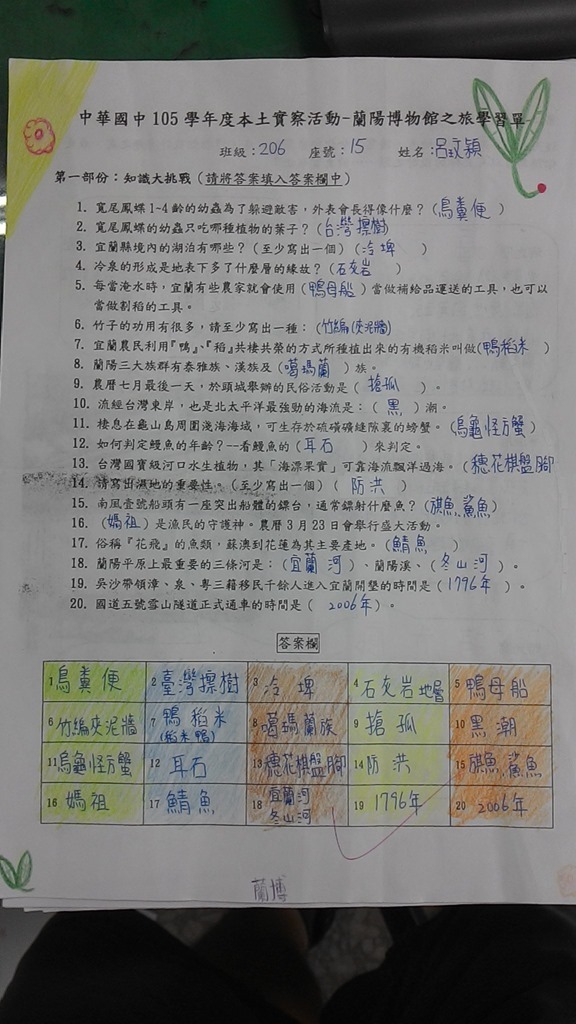 中華國中 105 學年度本土實察活動-蘭陽博物館之旅學習單
班級：206 座號：15 姓名：呂玟穎
第一部份：知識大挑戰（請將答案填入答案欄中）
1. 寬尾鳳蝶 1~4 齡的幼蟲為了躲避敵害，外表會長得像什麼？（鳥糞便）
2. 寬尾鳳蝶的幼蟲只吃哪種植物的葉子？（台灣擦樹）
3. 宜蘭縣境內的湖泊有哪些？（至少寫出一個）（冷埤）
4. 冷泉的形成是地表下多了什麼層的緣故？（石灰岩）
5. 每當淹水時，宜蘭有些農家就會使用（鴨母船）當做補給品運送的工具，也可以
當做割稻的工具。
6. 竹子的功用有很多，請至少寫出一種：（竹編夾泥牆）
7. 宜蘭農民利用『鴨』、『稻』共棲共榮的方式所種植出來的有機稻米叫做（鴨稻米）
8. 蘭陽三大族群有泰雅族、漢族及（噶瑪蘭）族。
9. 農曆七月最後一天，於頭城舉辦的民俗活動是（搶孤）。
10. 流經台灣東岸，也是北太平洋最強勁的海流是：（黑）潮。
11. 棲息在龜山島周圍淺海海域，可生存於硫磺礦縫隙裏的螃蟹。（烏龜怪方蟹）
12. 如何判定鰻魚的年齡？--看鰻魚的（耳石）來判定。
13. 台灣國寶級河口水生植物，其「海漂果實」可靠海流飄洋過海。（穗花棋盤腳
14. 請寫出濕地的重要性。（至少寫出一個）（防洪）
15. 南風壹號船頭有一座突出船體的鏢台，通常鏢射什麼魚？（旗魚,鯊魚）
16. （媽祖）是漁民的守護神。農曆 3 月 23 日會舉行盛大活動。
17. 俗稱『花飛』的魚類，蘇澳到花蓮為其主要產地。（鯖魚）
18. 蘭陽平原上最重要的三條河是：（宜蘭河）、蘭陽溪、（冬山河）。
19. 吳沙帶領漳、泉、粵三籍移民千餘人進入宜蘭開墾的時間是（1796年）。
20. 國道五號雪山隧道正式通車的時間是（2006年）。
答案欄
1 鳥糞便 2 臺灣擦樹 3 冷埤 4 石灰岩地層 5 鴨母船
6 竹編夾泥牆 7 鴨稻米 8 噶瑪蘭族 9 搶孤 10 黑潮
(稻米鴨)
11 烏龜怪方蟹 12 耳石 13 穗花棋盤腳 14 防洪 15 旗魚,鯊魚
16 媽祖 17 鯖魚 18 宜蘭河 19 1796年 20 2006年
冬山河
蘭博